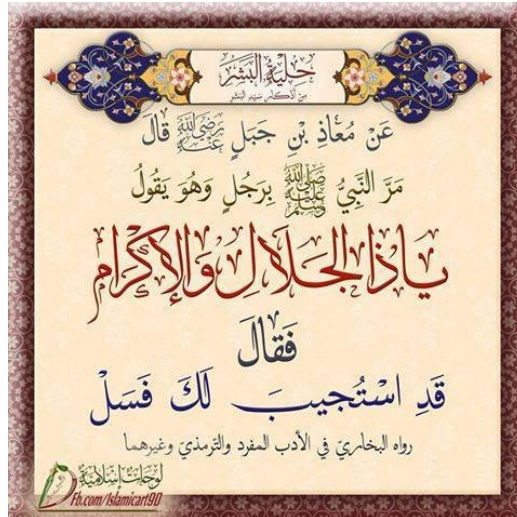 حِليَةُ البَشَر
مِن أذكار سيّد البَشر
عَنْ مُعَاذِ بْنِ جَبَلٍ رَضِيَ اللَّهُ عَنْهُ قَالَ
مَرَّ النَّبِيُّ صَلَّى اللَّهُ عَلَيْهِ وَسَلَّمَ بِرَجُلٍ وَهُوَ يَقُولُ
يَا ذَا الْجَلَالِ وَالْإِكْرَامِ
فَقَالَ
قَدِ اسْتُجِيبَ لَكَ فَسَلْ
رواه البخاريّ في الأدب المفرد والتّرمذيّ وغيرهما
لوحات إسلامية
Fb.com/Islamicart90